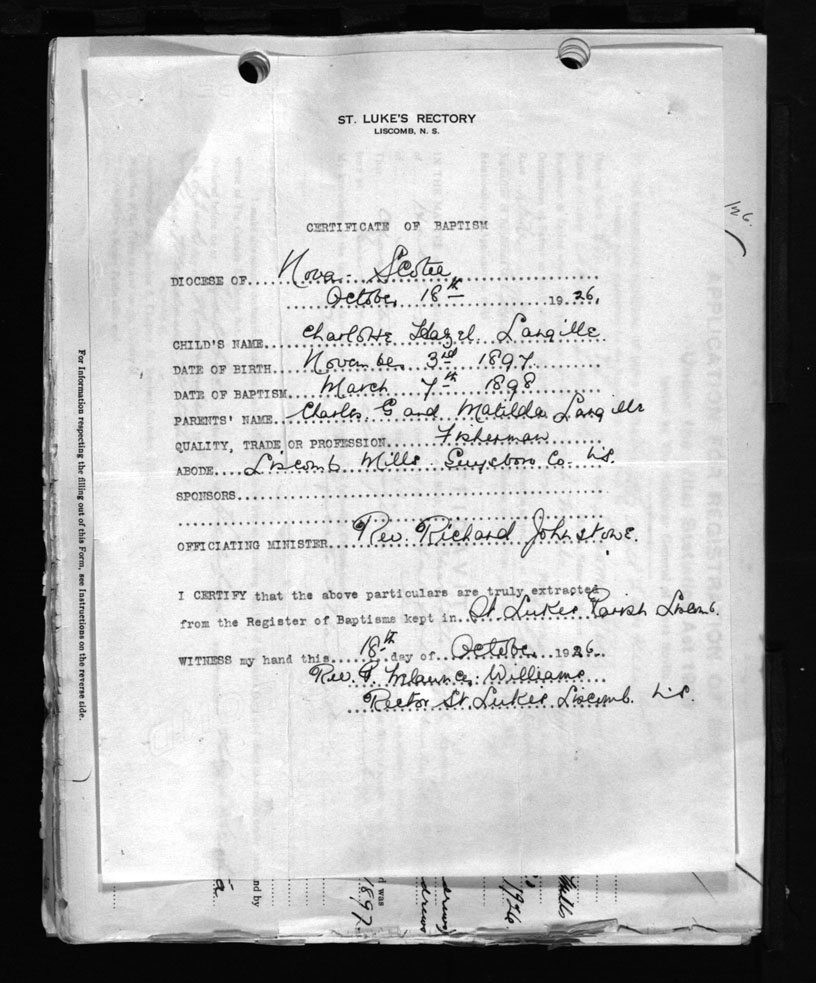 ST. LUKE'S RECTORY
LISCOMB, N. S.
126.
CERTIFICATE OF BAPTISM
DIOCESE OF.... Nova Scotia
October 18th 1926.
CHILD'S NAME.... Charlotte Hazel Langille
DATE OF BIRTH.... November 3rd 1897.
DATE OF BAPTISM.... March 7th 1898
PARENTS' NAME.... Charles G and Matilda Langille
QUALITY, TRADE OR PROFESSION.... Fisherman
ABODE.... Liscomb Mills Guysboro Co. N.S.
SPONSORS....
OFFICIATING MINISTER.... Rev. Richard Johnstone.
I CERTIFY that the above particulars are truly extracted
from the Register of Baptisms kept in.. St Lukes Parish Liscomb.
WITNESS my hand this.. 18th day of October. 1926.
Rev. Williams
Rector St. Lukes Liscomb. N.S.
For Information respecting the filling out of this Form, see Instructions on the reverse side.
nd by
d was
1897
1926.
Mills